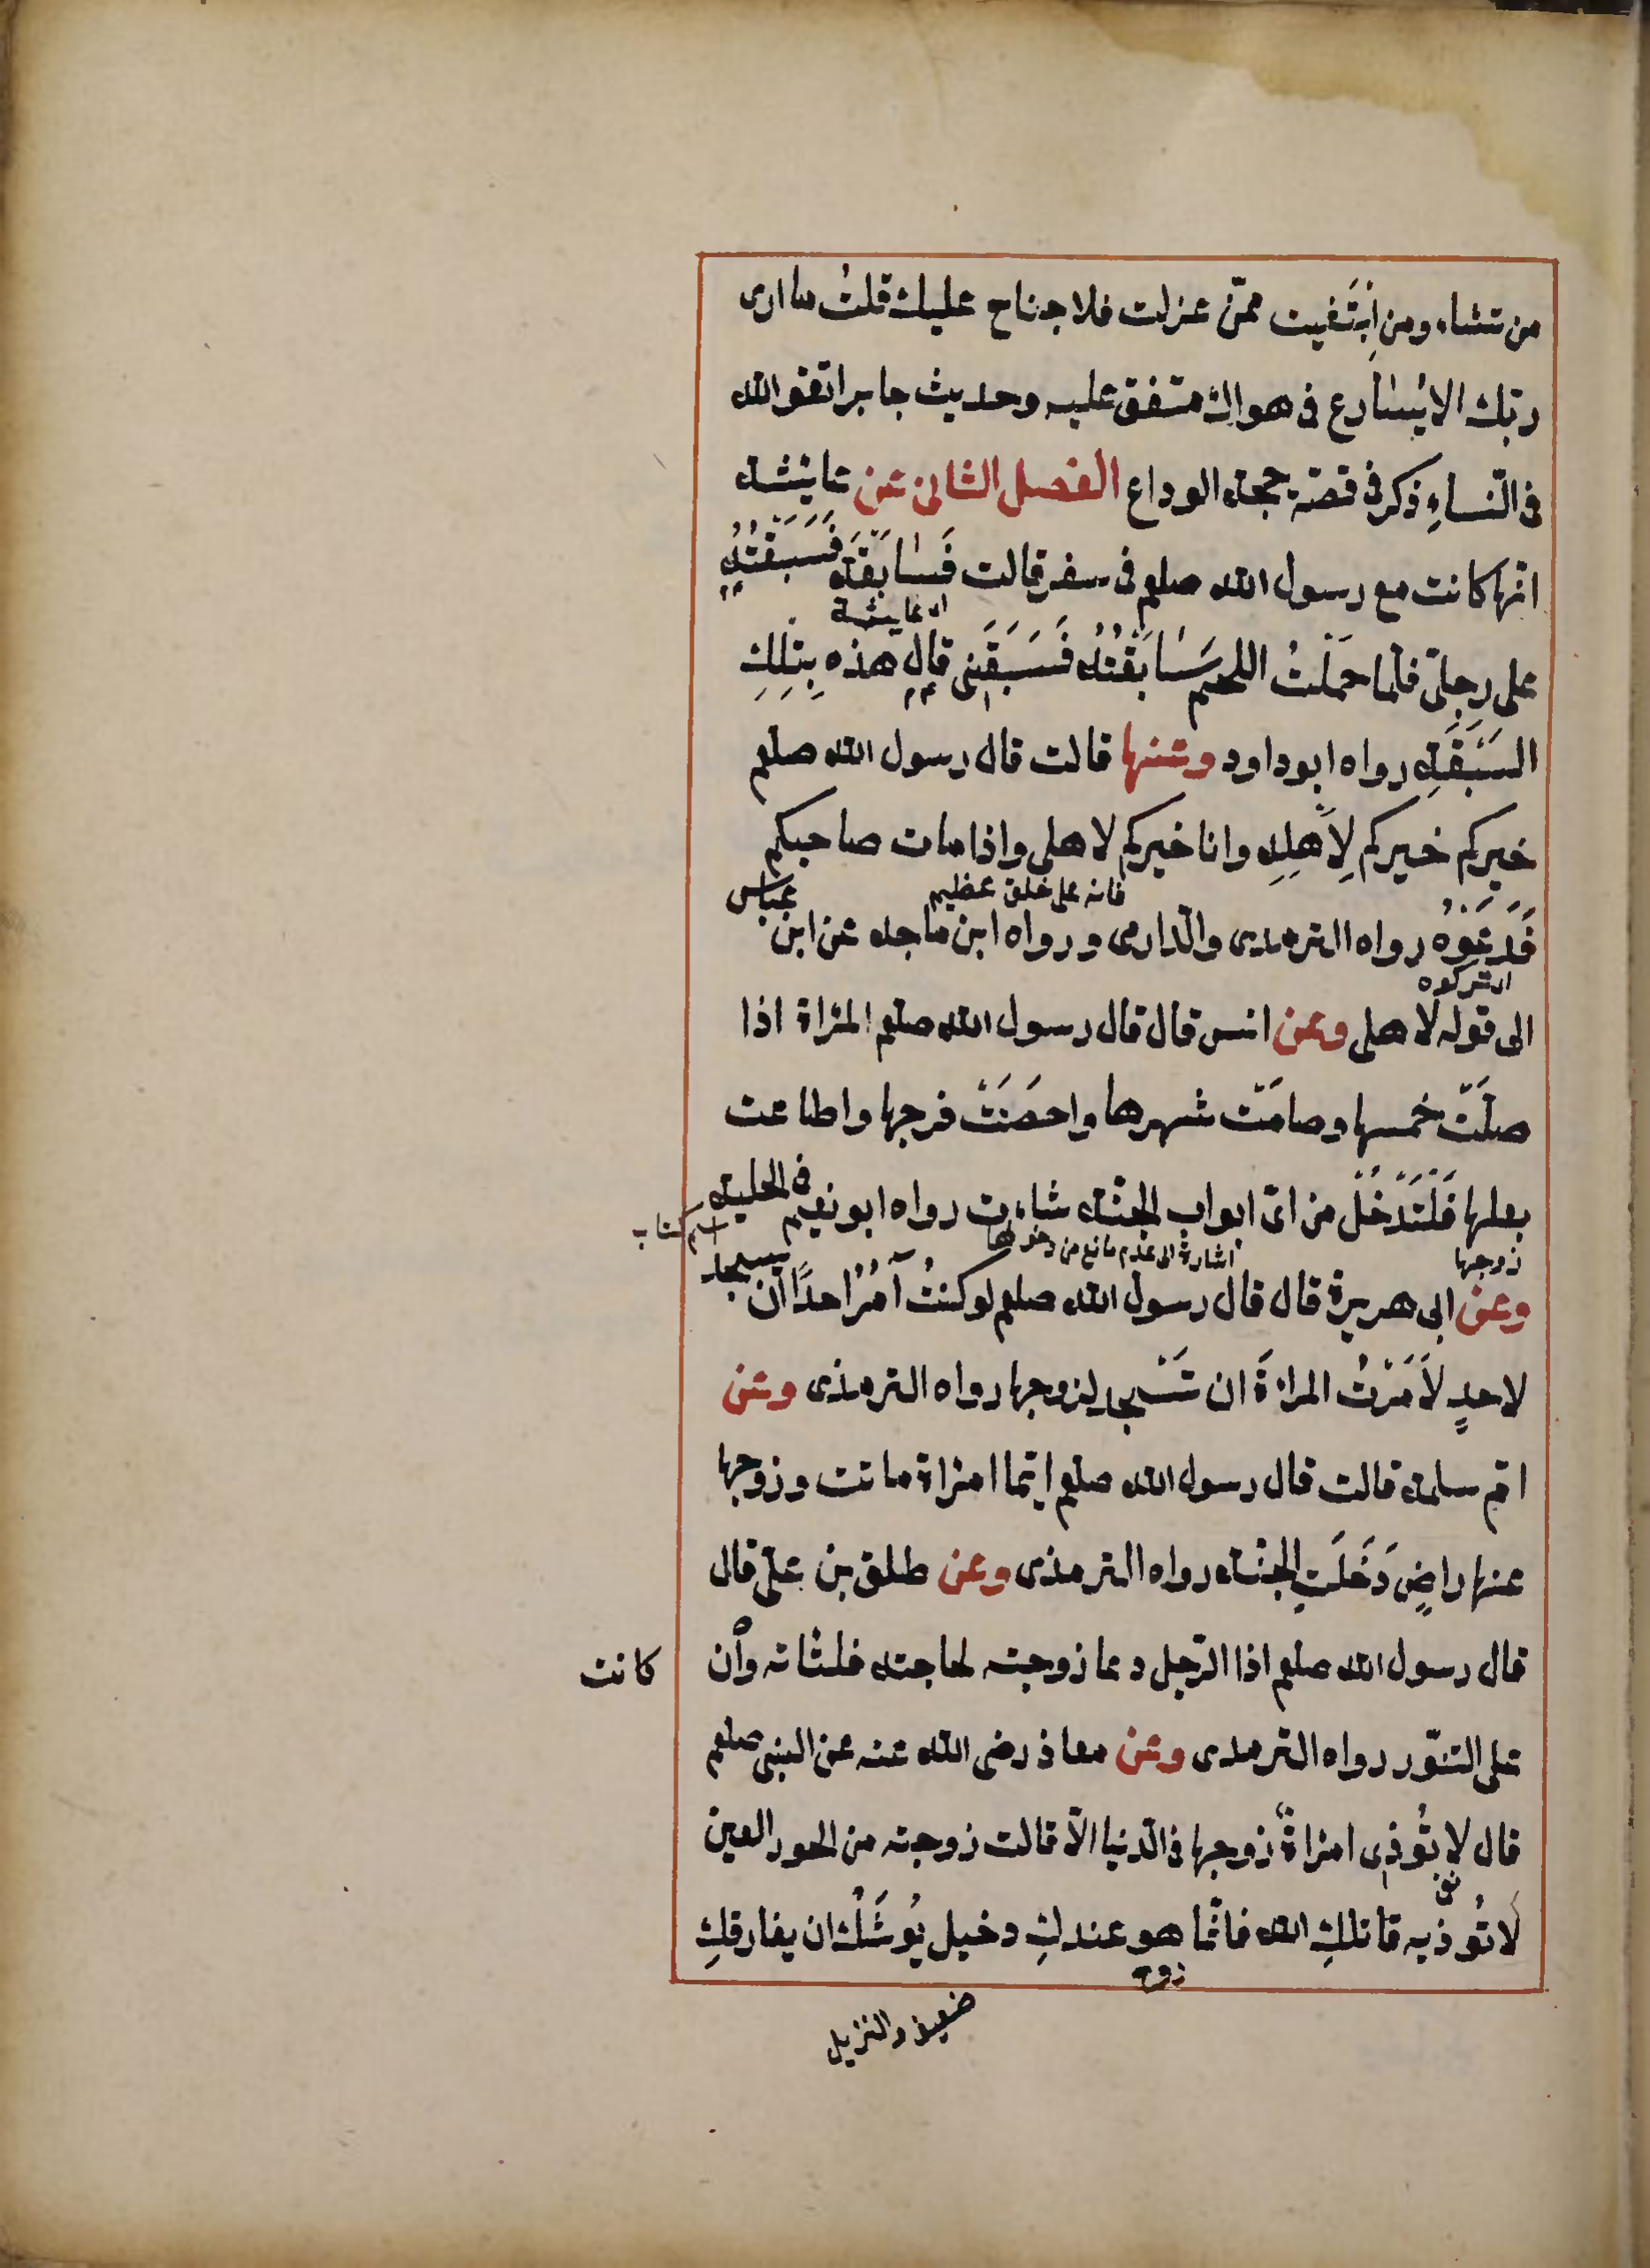 من تشاء ومن ابْتَغيت ممّن عزلت فلا جناح عليك قلتُ ما ارى
ربّك الا يُسَارع فى هواك متفق عليه وحديث جابر اتقو الله
فى النّساءِ ذكر فى قصّة حجة الوداع الفصل الثانى عن عائشة
انّها كانت مع رسول الله صلعم فى سفر قالت فَسَابَقَته فَسَبَقْتُهُ
اى عايشة
على رجلىّ فلمّا حمَلْتُ اللحم سَابَقْتُهُ فَسَبَقَنِى قال هذه بِتِلكِ
السَبْقَةِ رواه ابو داود وعنها قالت قال رسول الله صلعم
خيركم خيركم لِاَهْلِهِ وانا خيركم لاهلى واذا مات صاحبكم
فانه على خلق عظيم
فَدَعَوْهُ رواه الترمذى والدّارمى ورواه ابن ماجه عن ابن عباس
اى تركوه
الى قوله لاهلى وعن انس قال قال رسول الله صلعم المرْاة اذا
صلّتَ خمسها وصامَتْ شهرها واحصَنَتْ فرجها واطاعت
بعلها فَلْتَدْخُلْ من اىّ ابواب الجنّة شاءت رواه ابو نعيم فى الحلية
اسم كتاب
زوجها
اشارة الى عدم مانع من دخولها
وعن ابى هريرة قال قال رسول الله صلعم لو كنتُ آمُرُ احدًا ان يسجد
لاحدٍ لَاَمَرْتُ المراةَ ان تَسْجد لزوجها رواه الترمذى وعن
امّ سلمة قالت قال رسول الله صلعم ايّما امرْاة ماتت وزوجها
عنها راضٍ دَخَلَتِ الجنّة رواه الترمذى وعن طلق بن علىّ قال
قال رسول الله صلعم اذا الرّجل دعا زوجته لحاجته فلتاته وأن
كانت
على التنّور رواه الترمذى وعن معاذ رضى الله عنه عن النبى صلعم
قال لا تُوذى امرْاةٌ زوجها فى الدّنيا الّا قالت زوجته من الحور العين
لَا تُوذيه قاتلكِ الله فانّما هو عندكِ دخيل يُوشَكْ ان يفارقكِ
زوج
ضعيف والنزيل